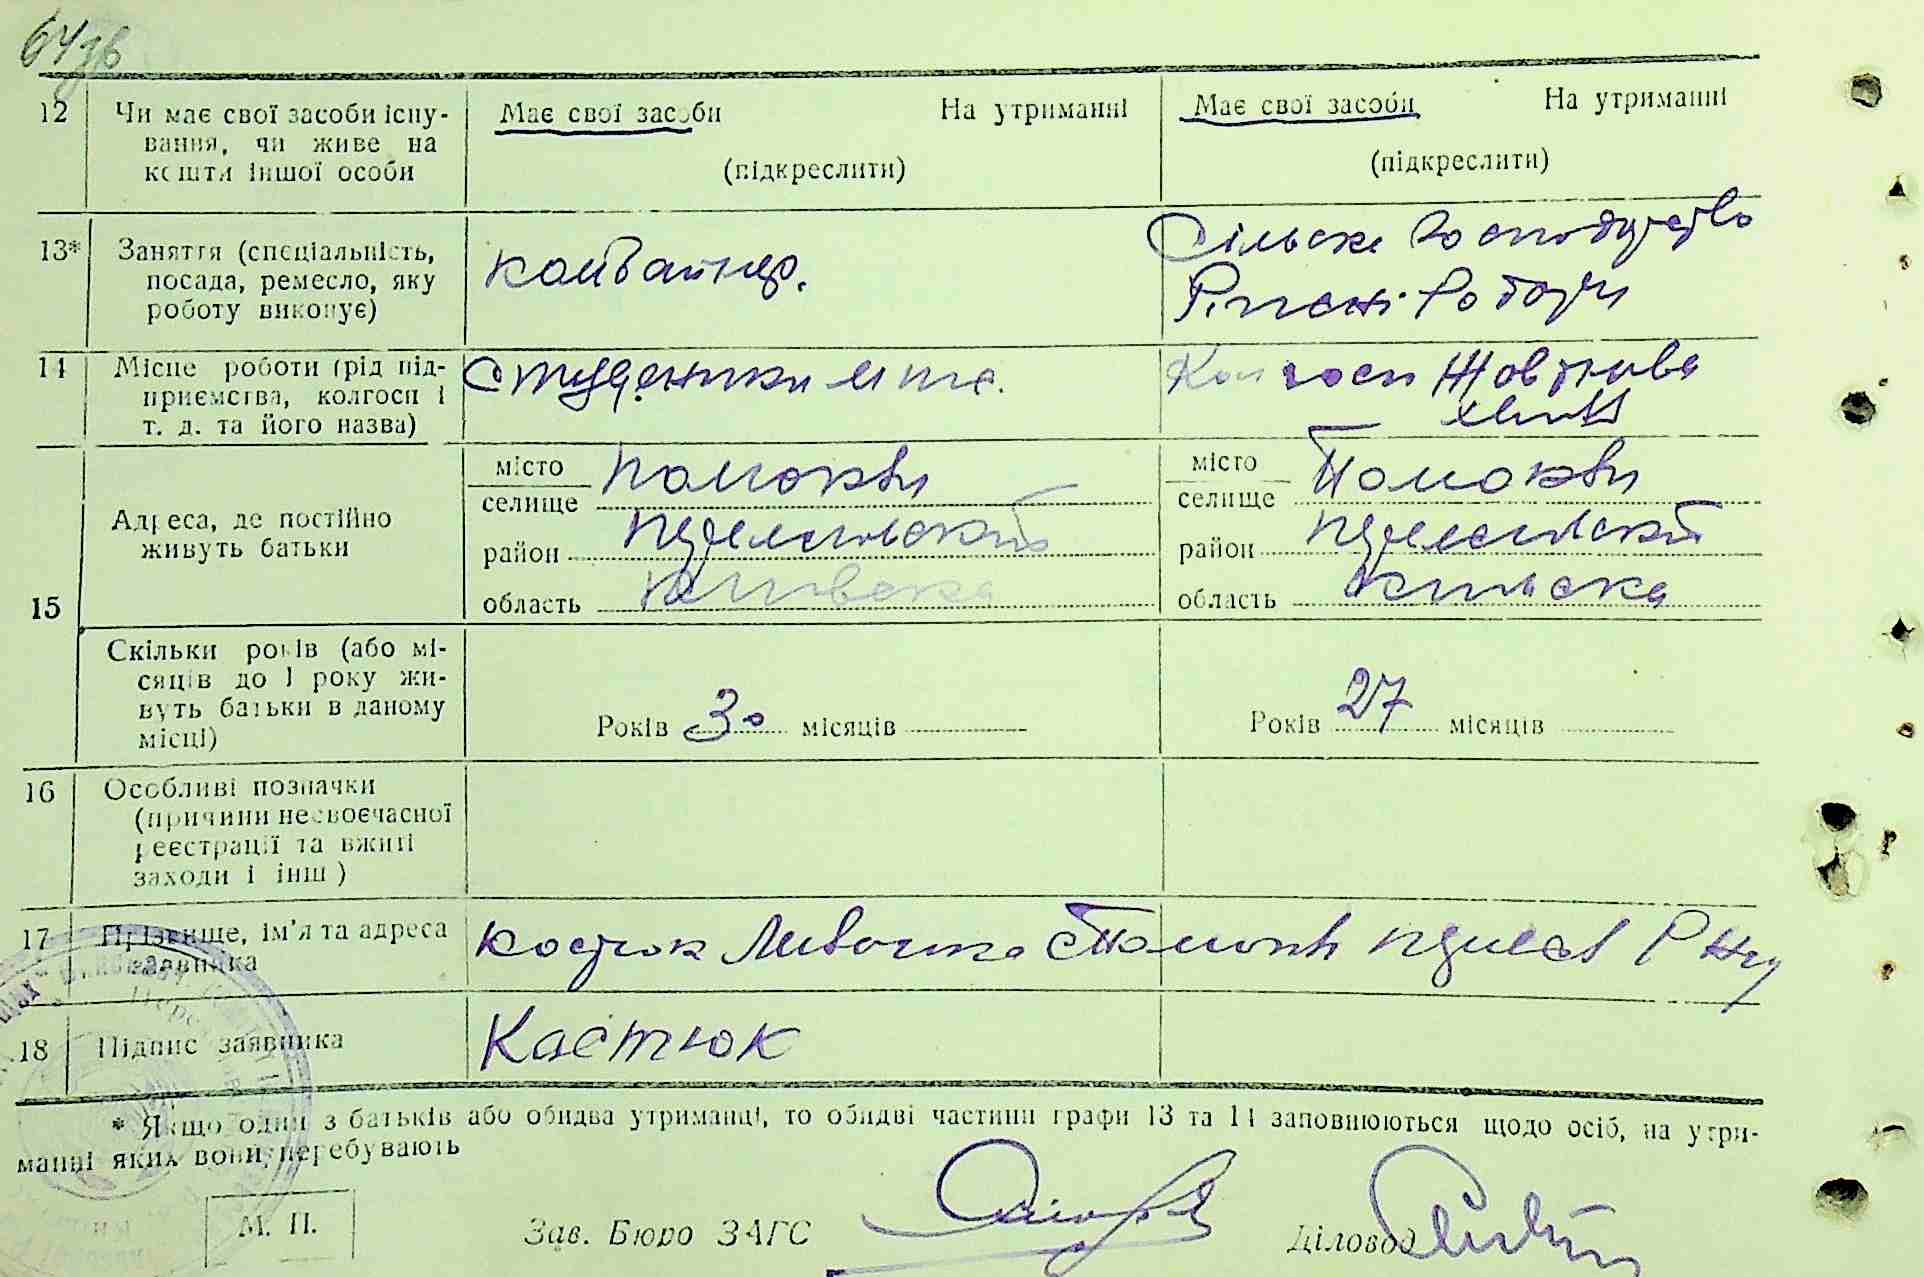 64зв
12 Чи має свої засоби існу-
вання, чи живе на
кошти іншої особи
Має свої засоби На утриманні
(підкреслити)
Має свої засоби На утриманні
(підкреслити)
13* Заняття (спеціальність,
посада, ремесло, яку
роботу виконує)
комбайнер.
Сільске Господарство
Різні Роботи
14 Місце роботи (рід під-
приємства, колгосп і
т. д. та його назва)
Студеники
Колгосп Жовтнева
15 Адреса, де постійно
живуть батьки
місто
селище Помокли
район
область Київска
місто
селище Помокли
район
область Київска
Скільки років (або мі-
сяців до 1 року жи-
вуть батьки в даному
місці)
Років 30 місяців
Років 27 місяців
16 Особливі позначки
(причини несвоєчасної
реєстрації та вжиті
заходи і інш)
17 Прізвище, ім'я та адреса
заявника
Костюк
18 Підпис заявника
Кастюк
* Якщо один з батьків або обидва утриманці, то обидві частини графи 13 та 14 заповнюються щодо осіб, на утри-
манні яких вони перебувають
М. П.
Зав. Бюро ЗАГС
Діловод